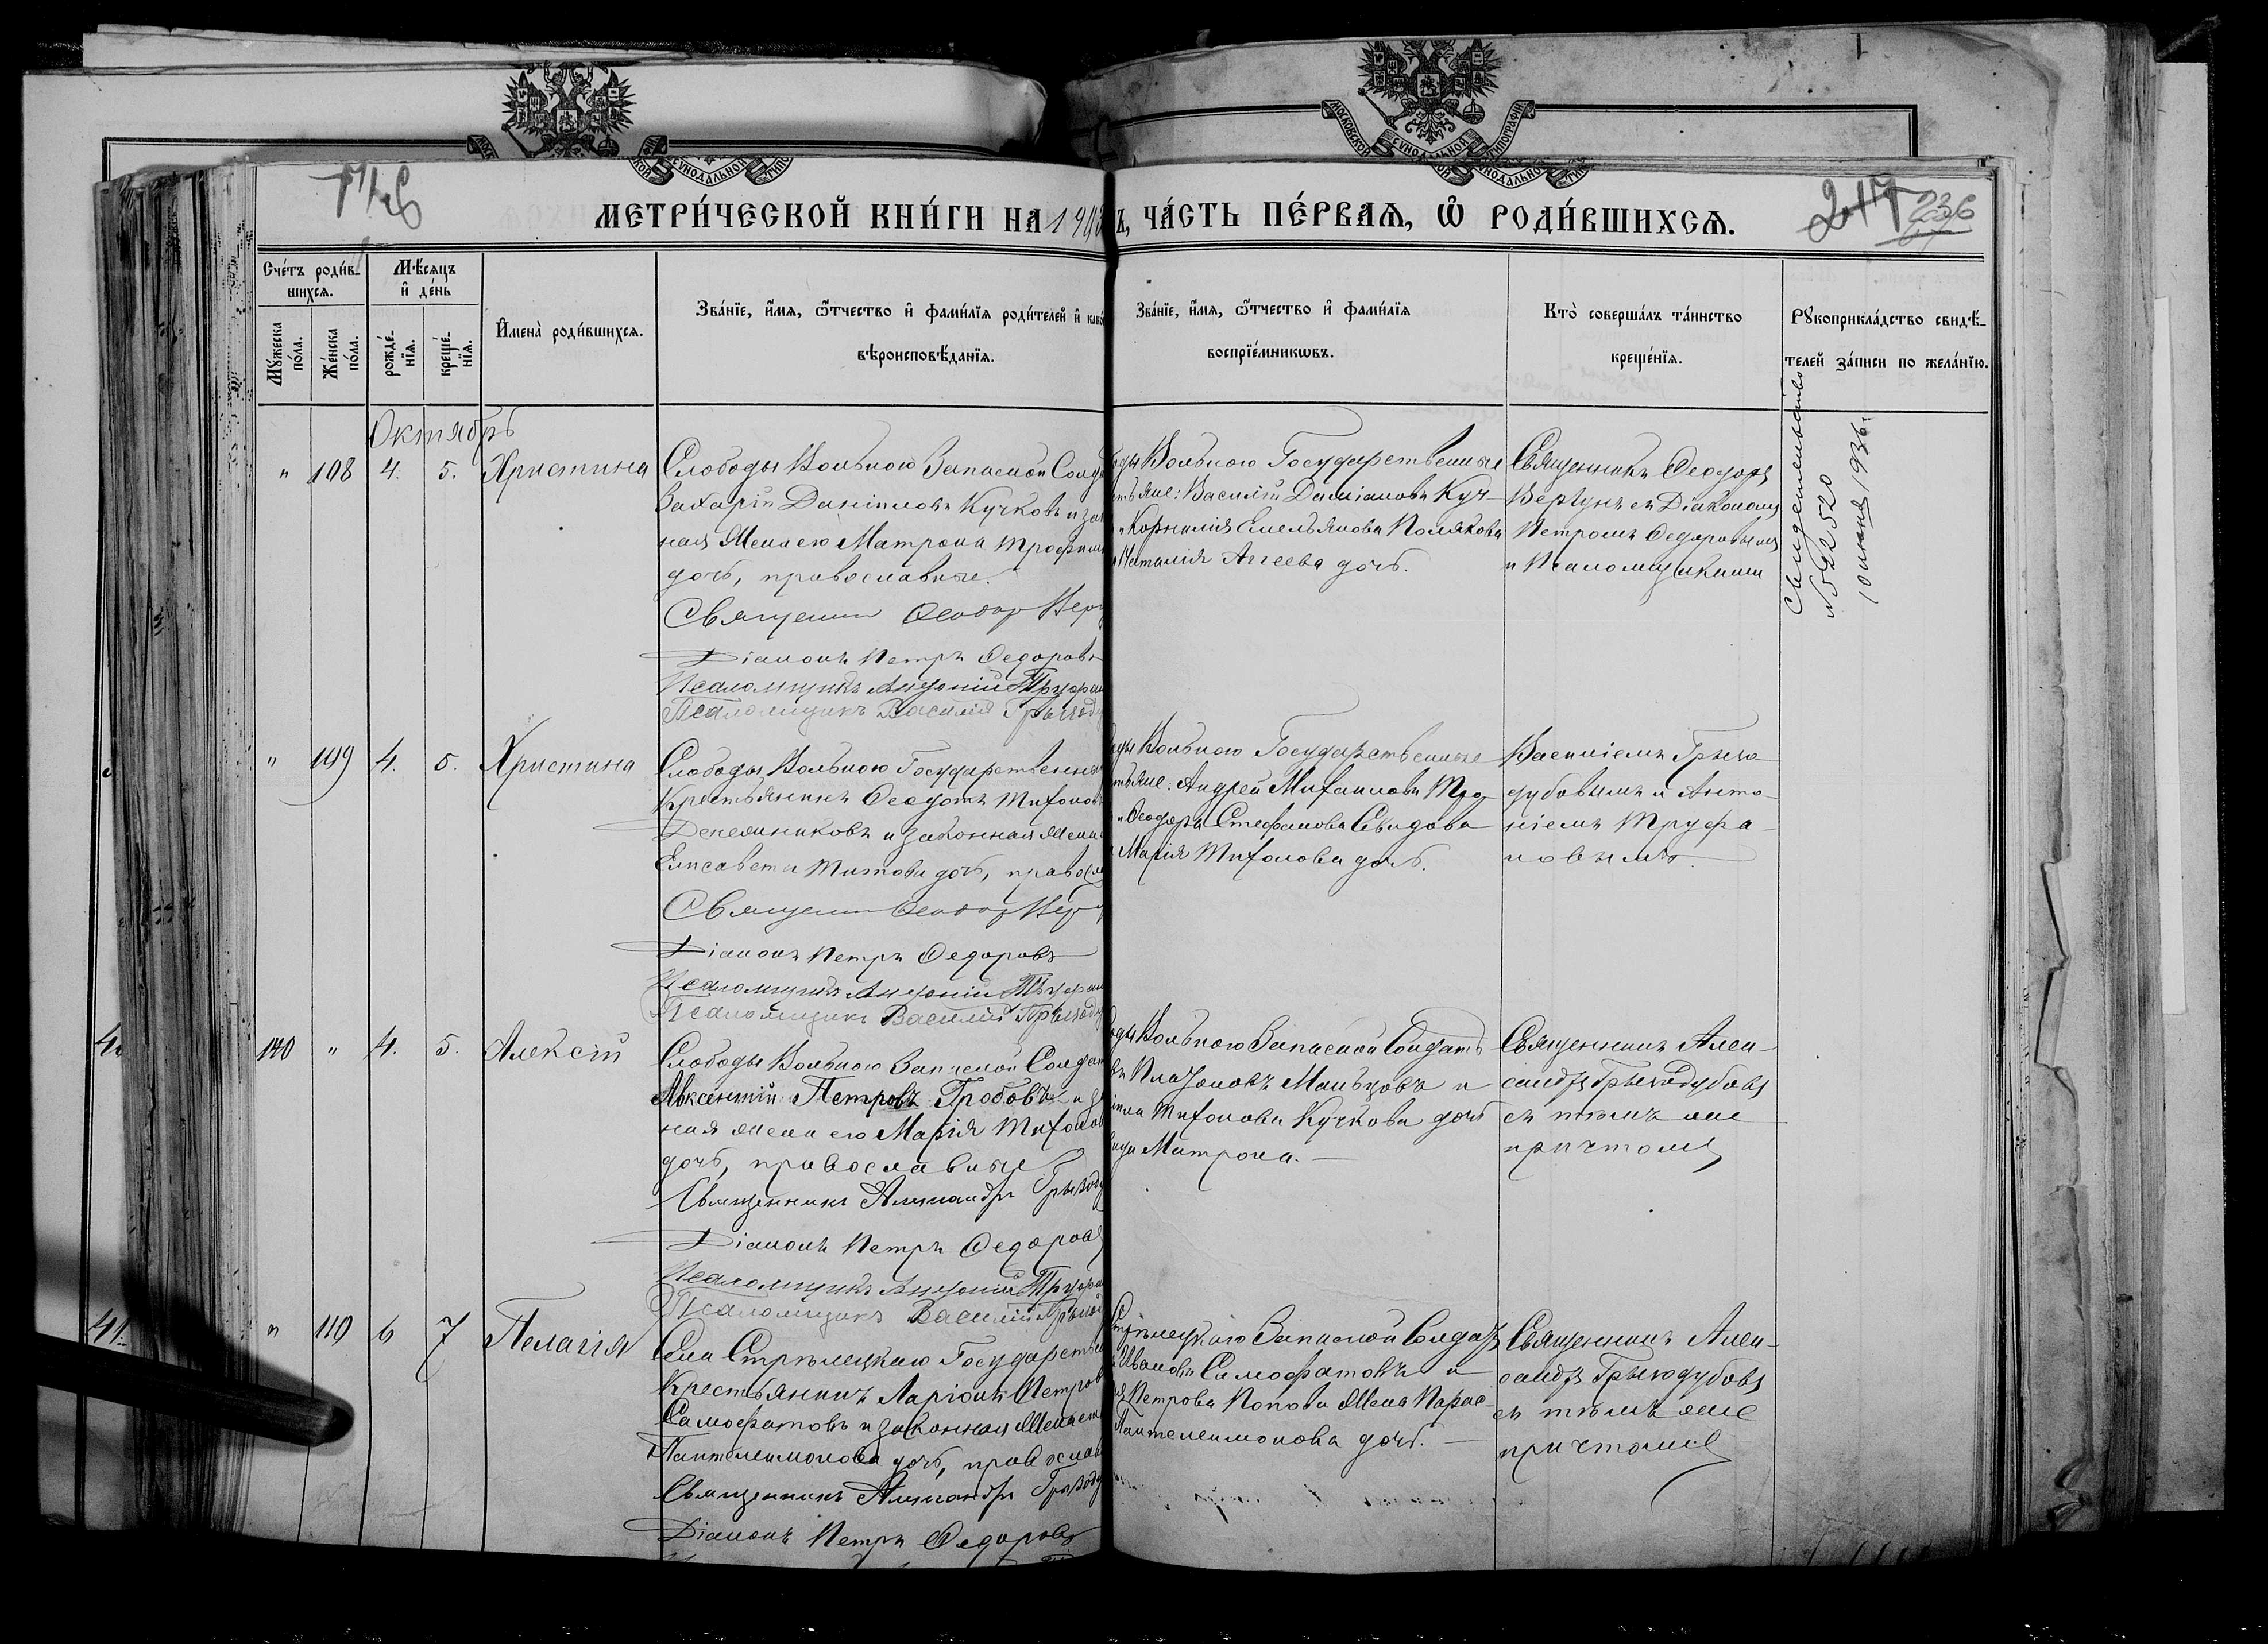 МОСКОВСКОЙ СУНОДАЛЬНОЙ ТИПОГРАФІИ
СУНОДАЛЬНОЙ
МЕТРИ́ЧЕСКОЙ КНИ́ГИ НА 1903
Ъ, ЧА́СТЬ ПЕ́РВАѦ, Ѡ҆ РОДИ́ВШИХСѦ.
217 236
Сче́тъ роди́в-
шихсѧ.
Мѣ́сѧцъ
и҆ де́нь
Мꙋ́жеска по́ла.
Же́нска по́ла.
рожде́-нїѧ.
креще́-нїѧ.
И҆мена̀ роди́вшихсѧ.
Зва́нїе, и҆́мѧ, ѻ҆́тчество и҆ фами́лїѧ роди́телей и҆
вѣроисповѣ́данїѧ.
Зва́нїе, и҆́мѧ, ѻ҆́тчество и҆ фами́лїѧ
воспрїе́мникѡвъ.
Кто̀ соверша́лъ та́инство
креще́нїѧ.
Рꙋкоприкла́дство свидѣ́-
телей за́писи по жела́нїю.
Октябрь
" 108 4. 5. Христина
Слободы Вольною Запасной Солд
Захарій Даніиловъ Кучковъ и зак
ная жена его Матрона Трофим
дочь, православные.
Священник Феодор Вер
Діаконъ Петръ Федоровъ
Псаломщикъ Антоній Труфан
Псаломщикъ Василій Грыход
ды Вольною Государственные
тьяне: Василій Даміановъ Куч-
и Корнилія Емельянова Полякова
Наталія Агеева дочь.
Священникъ Феодоръ
Вергунъ съ Діакономъ
Петромъ Федоровымъ
и Псаломщиками
Свидетельство
10 июня 1936г.
" 109 4. 5. Христина
Слободы Вольною Государственн
Крестьянинъ Феодотъ Тихонов
и законная жена
Елисавета Титова дочь, правосл
Священник Феодор Вер
Діаконъ Петръ Федоровъ
Псаломщикъ Антоній Труфан
Псаломщикъ Василій Грыход
ды Вольною Государственные
тьяне: Андрей Михаиловъ
и Феодора Стефанова
Марія Тихонова дочь.
Василіемъ Грыхо-
дубовымъ и Анто-
ніемъ Труфа-
новымъ.
140 " 4. 5. Алексій
Слободы Вольною Запасной Солдат
Авксентій Петровъ Гробовъ и з
ная жена его Марія Тихонов
дочь, православные
Священникъ Александръ Грыход
Діаконъ Петръ Федоровъ
Псаломщикъ Антоній Труфан
Псаломщикъ Василій Грыход
ды Вольною Запасной Солдатъ
Платоновъ Мальцовъ и
Тихонова Кучкова дочь
Матрона.
Священникъ Алек-
сандръ Грыходубовъ
съ тѣмъ же
причтомъ
" 110 6 7 Пелагія
Села Стрѣлецкаго Государствен
Крестьянинъ Ларіонъ Петров
Самофаловъ и законная жена его
Пантелеимонова дочь, православ
Священникъ Александръ Грыход
Діаконъ Петръ Федоровъ
Стрѣлецкаго Запасной Солдатъ
Ивановъ Самофаловъ и
Петрова Попова жена Парас-
Пантелеимонова дочь.
Священникъ Алек-
сандръ Грыходубовъ
съ тѣмъ же
причтомъ